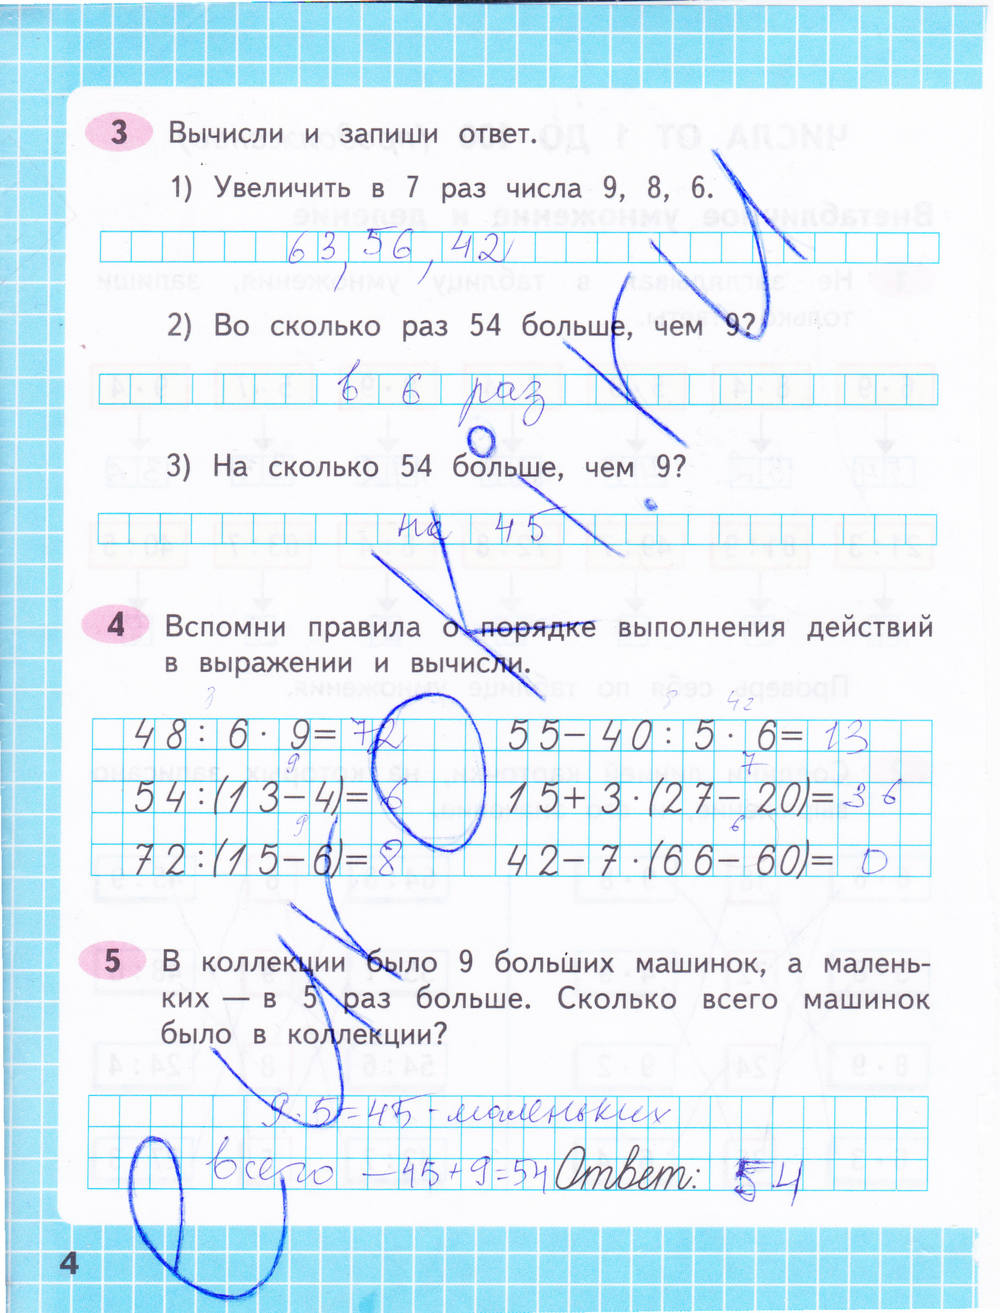 3 Вычисли и запиши ответ.
1) Увеличить в 7 раз числа 9, 8, 6.
63, 56, 42
2) Во сколько раз 54 больше, чем 9?
в 6 раз
3) На сколько 54 больше, чем 9?
на 45
4 Вспомни правила о порядке выполнения действий
в выражении и вычисли.
48 : 6 · 9 = 72 55 – 40 : 5 · 6 = 13
54 : (13 – 4) = 6 15 + 3 · (27 – 20) = 36
72 : (15 – 6) = 8 42 – 7 · (66 – 60) = 0
5 В коллекции было 9 больших машинок, а малень-
ких — в 5 раз больше. Сколько всего машинок
было в коллекции?
9 · 5 = 45 - маленьких
всего – 45 + 9 = 54 Ответ: 54
4